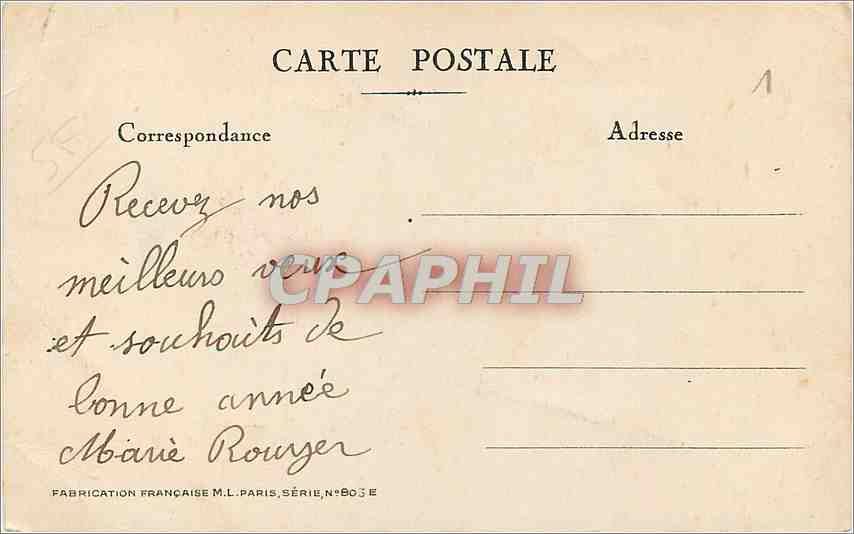 CARTE POSTALE
1
Correspondance
Adresse
5F
Recevez nos
meilleurs veux
CPAPHIL
et souhaits de
bonne année
Marie
FABRICATION FRANÇAISE M.L. PARIS, SÉRIE, No 803 E